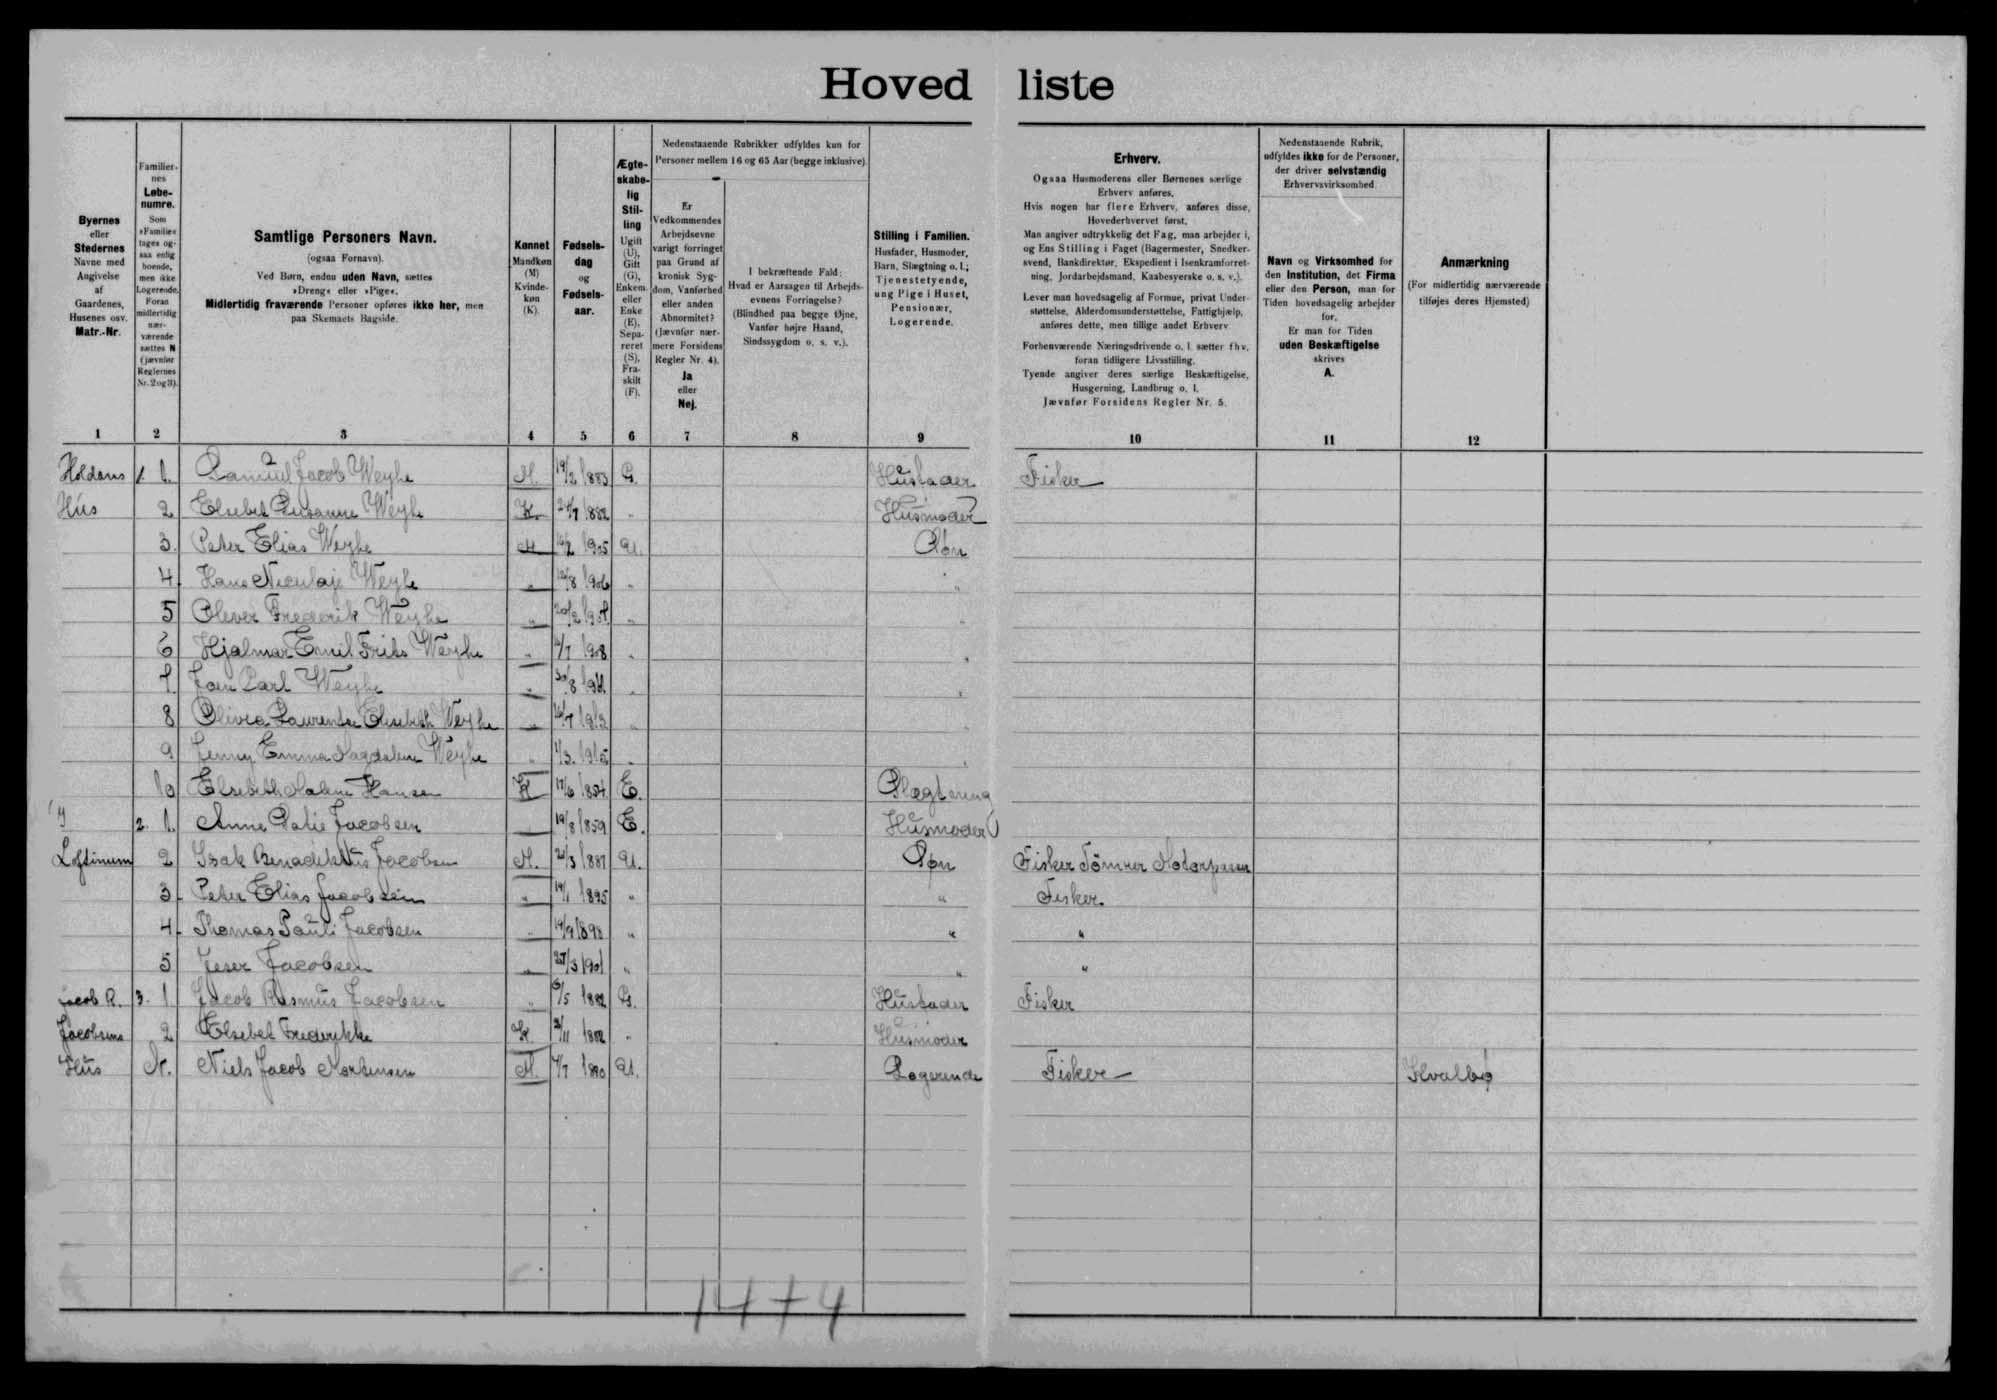 Hovedliste
Byernes eller Stedernes Navne med Angivelse af Gaardenes, Husenes osv. Matr.-Nr.
Familiernes Løbenumre. Som »Familie« tages ogsaa enlig boende, men ikke Logerende. Foran midlertidig nærværende sættes N (jævnfør Reglernes Nr. 2 og 3).
Samtlige Personers Navn.
(ogsaa Fornavn).
Ved Børn, endnu uden Navn, sættes »Dreng« eller »Pige«.
Midlertidig fraværende Personer opføres ikke her, men paa Skemaets Bagside.
Kønnet Mandkøn (M) Kvindekøn (K).
Fødselsdag og Fødselsaar.
Ægteskabelig Stilling Ugift (U), Gift (G), Enkem. eller Enke (E), Separeret (S), Fraskilt (F).
Nedenstaaende Rubrikker udfyldes kun for Personer mellem 16 og 65 Aar (begge inklusive).
Er Vedkommendes Arbejdsevne varigt forringet paa Grund af kronisk Sygdom, Vanførhed eller anden Abnormitet? (Jævnfør nærmere Forsidens Regler Nr. 4). Ja eller Nej.
I bekræftende Fald: Hvad er Aarsagen til Arbejdsevnens Forringelse? (Blindhed paa begge Øjne, Vanfør højre Haand, Sindssygdom o. s. v.).
Stilling i Familien. Husfader, Husmoder, Barn, Slægtning o. l.; Tjenestetyende, ung Pige i Huset, Pensionær, Logerende.
Erhverv.
Ogsaa Husmoderens eller Børnenes særlige Erhverv anføres.
Hvis nogen har flere Erhverv, anføres disse, Hovederhvervet først.
Man angiver udtrykkelig det Fag, man arbejder i, og Ens Stilling i Faget (Bagermester, Snedkersvend, Bankdirektør, Ekspedient i Isenkramforretning, Jordarbejdsmand, Kaabesyerske o. s. v.).
Lever man hovedsagelig af Formue, privat Understøttelse, Alderdomsunderstøttelse, Fattighjælp, anføres dette, men tillige andet Erhverv
Forhenværende Næringsdrivende o. l. sætter fhv. foran tidligere Livsstilling.
Tyende angiver deres særlige Beskæftigelse, Husgerning, Landbrug o. l.
Jævnfør Forsidens Regler Nr. 5.
Nedenstaaende Rubrik, udfyldes ikke for de Personer, der driver selvstændig Erhvervsvirksomhed
Navn og Virksomhed for den Institution, det Firma eller den Person, man for Tiden hovedsagelig arbejder for.
Er man for Tiden uden Beskæftigelse skrives A.
Anmærkning
(For midlertidig nærværende tilføjes deres Hjemsted)
1 2 3 4 5 6 7 8 9 10 11 12
1. 1. Samuel Jacob Weyhe M. 19/2 1883 G. Husfader Fisker
Hús 2 Elsebet Susanne Weyhe K. 1882 " Husmoder
3. Peter Elias Weyhe M 1905 U. Søn
4. Hans Nicolaje Weyhe " 1906 " "
5 Olever Frederik Weyhe " " "
6 Hjalmar Emil Frits Weyhe " 1908 " "
Carl Weyhe " " "
8 Olivia Laurentse Elisebeth Weyhe " 1913 " "
9 Jenny Emma Magdalene Weyhe " 1/3. 1915 " "
10 Elsebeth Malene Hansen K 17/6 1854. E. Slægtning
2. 1. Anne Jacobsen 19/8 1859 E. Husmoder
2 Isak Benadiktus Jacobsen M. U. Søn Fisker Tömrer
3. Peter Elias Jacobsen " 1895 " " Fisker.
4. Thomas Pauli Jacobsen " 19/9 1898 " " "
5 Jacobsen " 1901 " " "
Jacob R. 3. 1. Jacob Rasmus Jacobsen " 1882 G. Husfader Fisker
Jacobsens 2 Elsebet Frederikke K. 1882 " Husmoder
Hus N. Niels Jacob Mortensen M. 1890 U. Logerende Fisker Kvalbø
1474